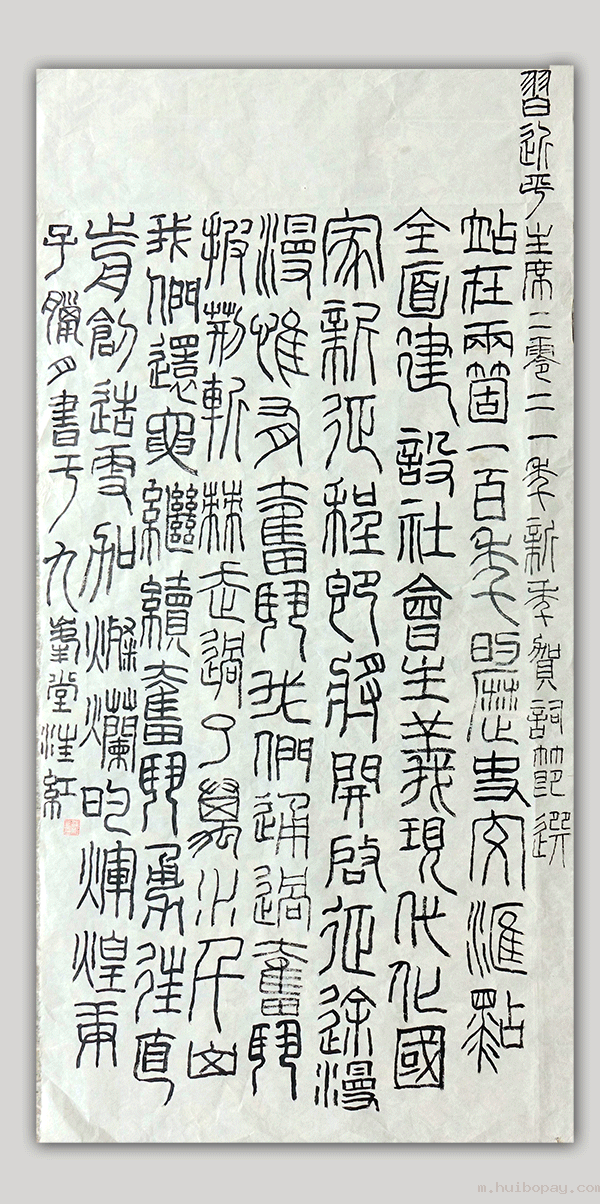 習近平主席二零二一年新年賀詞節選
站在兩箇一百年的歷史交匯點
全面建設社會主義現代化國
家新征程即將開啟征途漫
漫惟有奮鬥我們通過奮鬥
披荊斬棘走過了萬水千山
我們還要繼續奮鬥勇往直
前創造更加燦爛的輝煌庚
子臘月書于九峯堂汪紅
m.huibopay.com